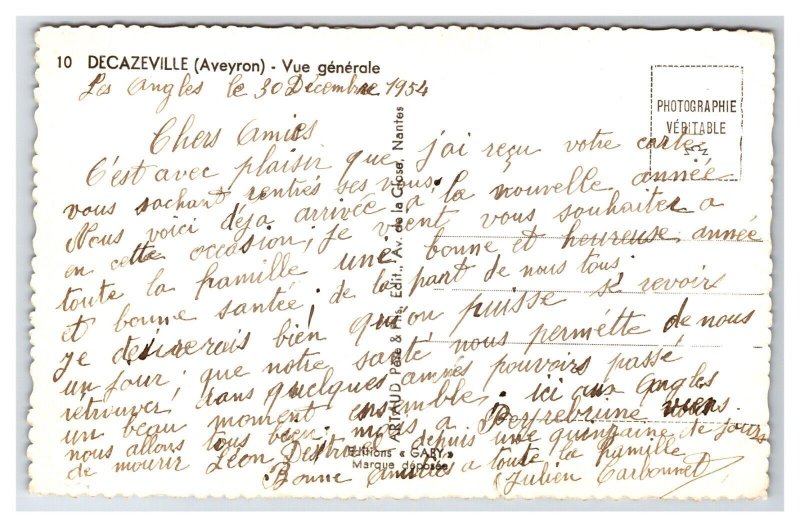 10 DECAZEVILLE (Aveyron) - Vue générale
Les Angles le 30 Décembre 1954
PHOTOGRAPHIE
VÉRITABLE
Chers Amies
C'est avec plaisir que j'ai reçu votre carte
vous sachant rentrés ses vous.
Nous voici déja arrivée a la nouvelle année
en cette occasion; je vient vous souhaiter a
toute la famille une bonne et heureuse année
et bonne santée; de la part de nous tous.
je désirerais bien qu'on puisse se revoir
un jour; que notre santé nous permétte de nous
retrouver, dans quelques années pouvoirs passé
un beau moment ensemble. ici aux Angles
nous allons tous bien. mais a Peyrebrune viens
de mourir Léon depuis une quinzaine de jours
Bonne amitiés a toute la famille
Julien Carbonnel
ARTAUD Père & Fils, Édit., Av. de la Close, Nantes
Éditions « GABY »
Marque déposée